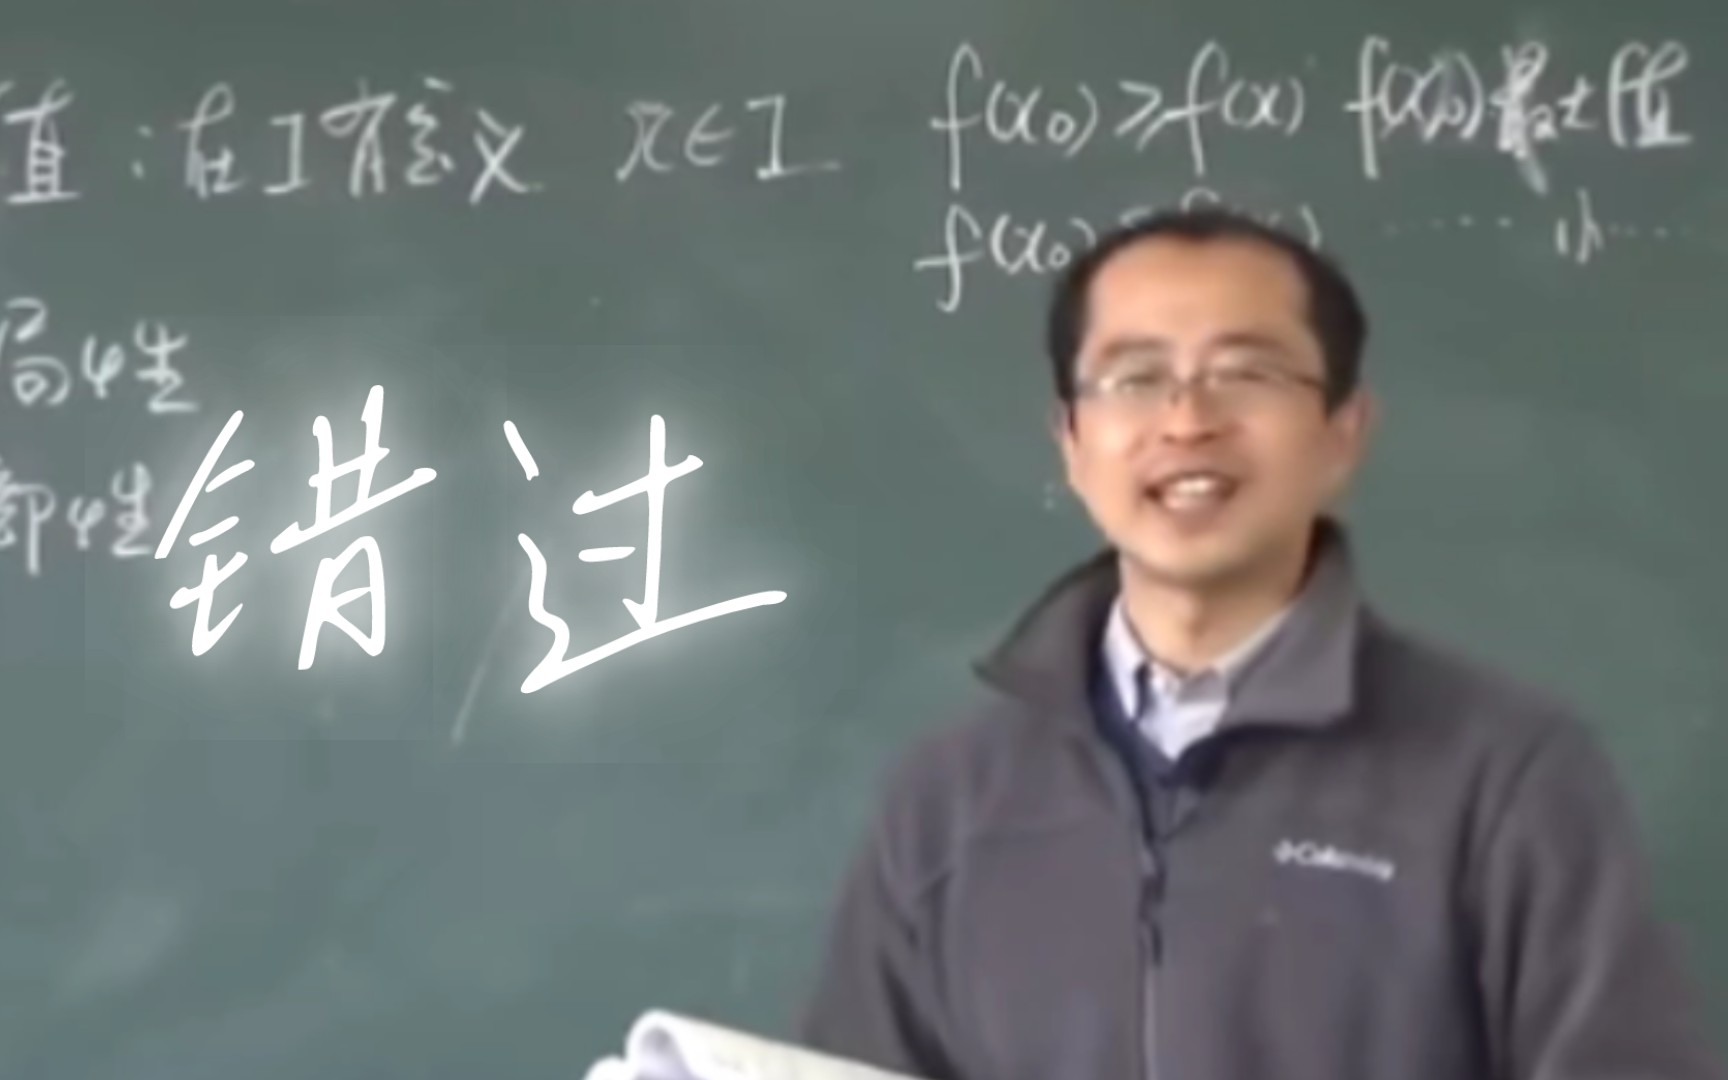 值：在I有定义 x∈I f(x₀)≥f(x) f(x₀)最大值
f(x₀) ······ 小 ····
局性
部性
错过
Columbia